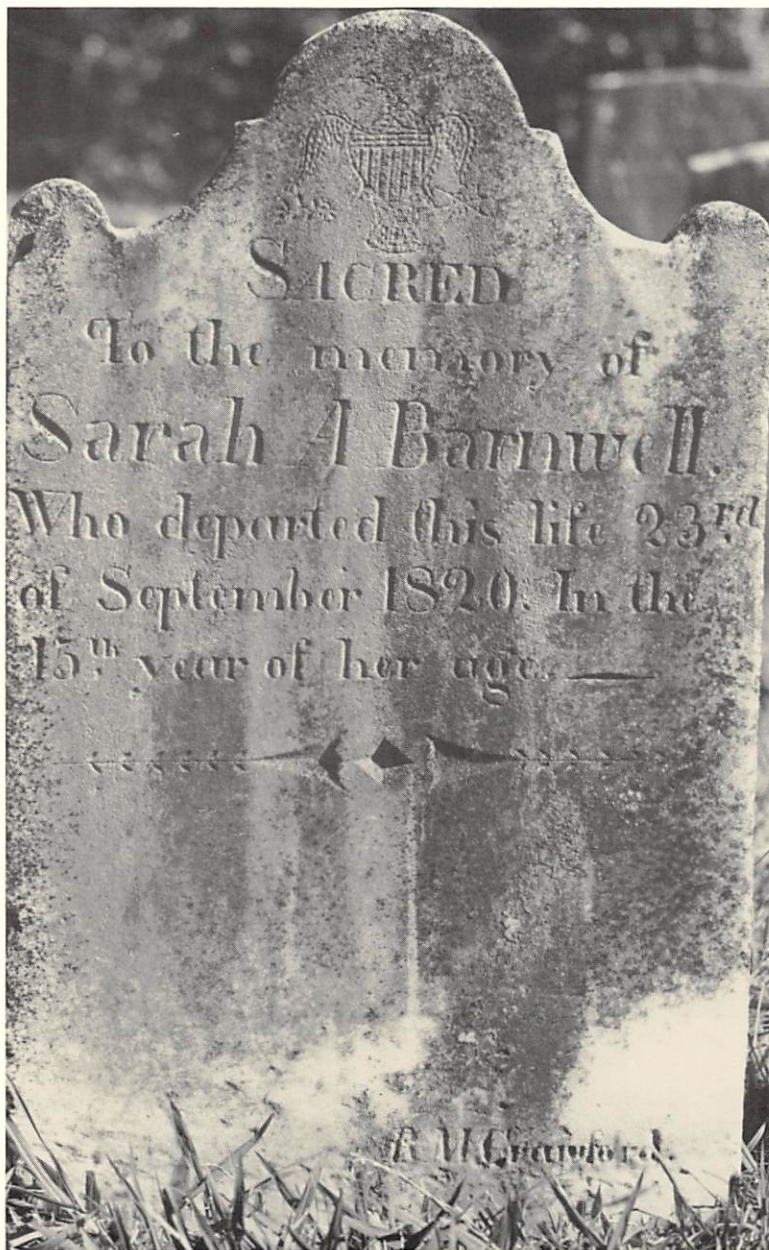 SACRED
To the memory of
Sarah A Barnwell.
Who departed this life 23rd
of September 1820. In the
15th year of her age. —
R. M. Crawford.